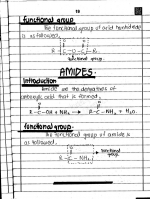 functional group
The functional group of acid anhydride
is as followed,
O O
R-C-O-C-R.
functional group
AMIDES.
Introduction
Amide are the derivatives of
carboxylic acid that is formed.
O O
R-C-OH + NH₃ → R-C-NH₂ + H₂O.
functional group.
The functional group of amide is
as followed,
O
R-C-NH₂
functional
group